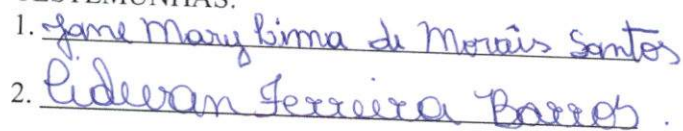 TESTEMUNHAS:
1. Jane Mary Lima de Morais Santos
2. Lidevan Ferreira Barros.